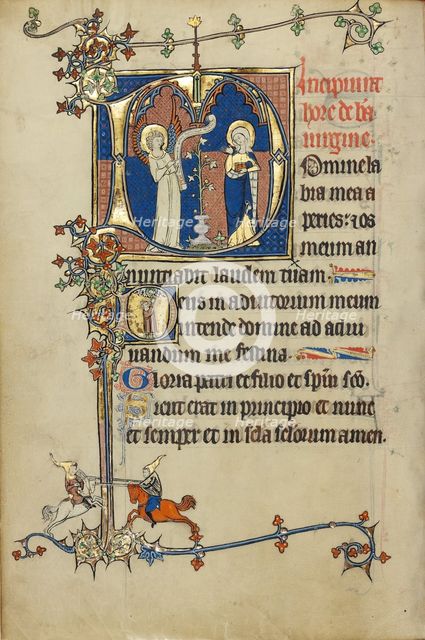 Incipiunt
hore de be
uirgine.
Domine la
bia mea a
peries: & os
meum an
nuntiabit laudem tuam.
Deus in adiutorium meum
intende domine ad adiu
uandum me festina.
Gloria patri et filio et spiri sco.
Sicut erat in principio et nunc
et semper et in scla sclorum amen.
Heritage
Images